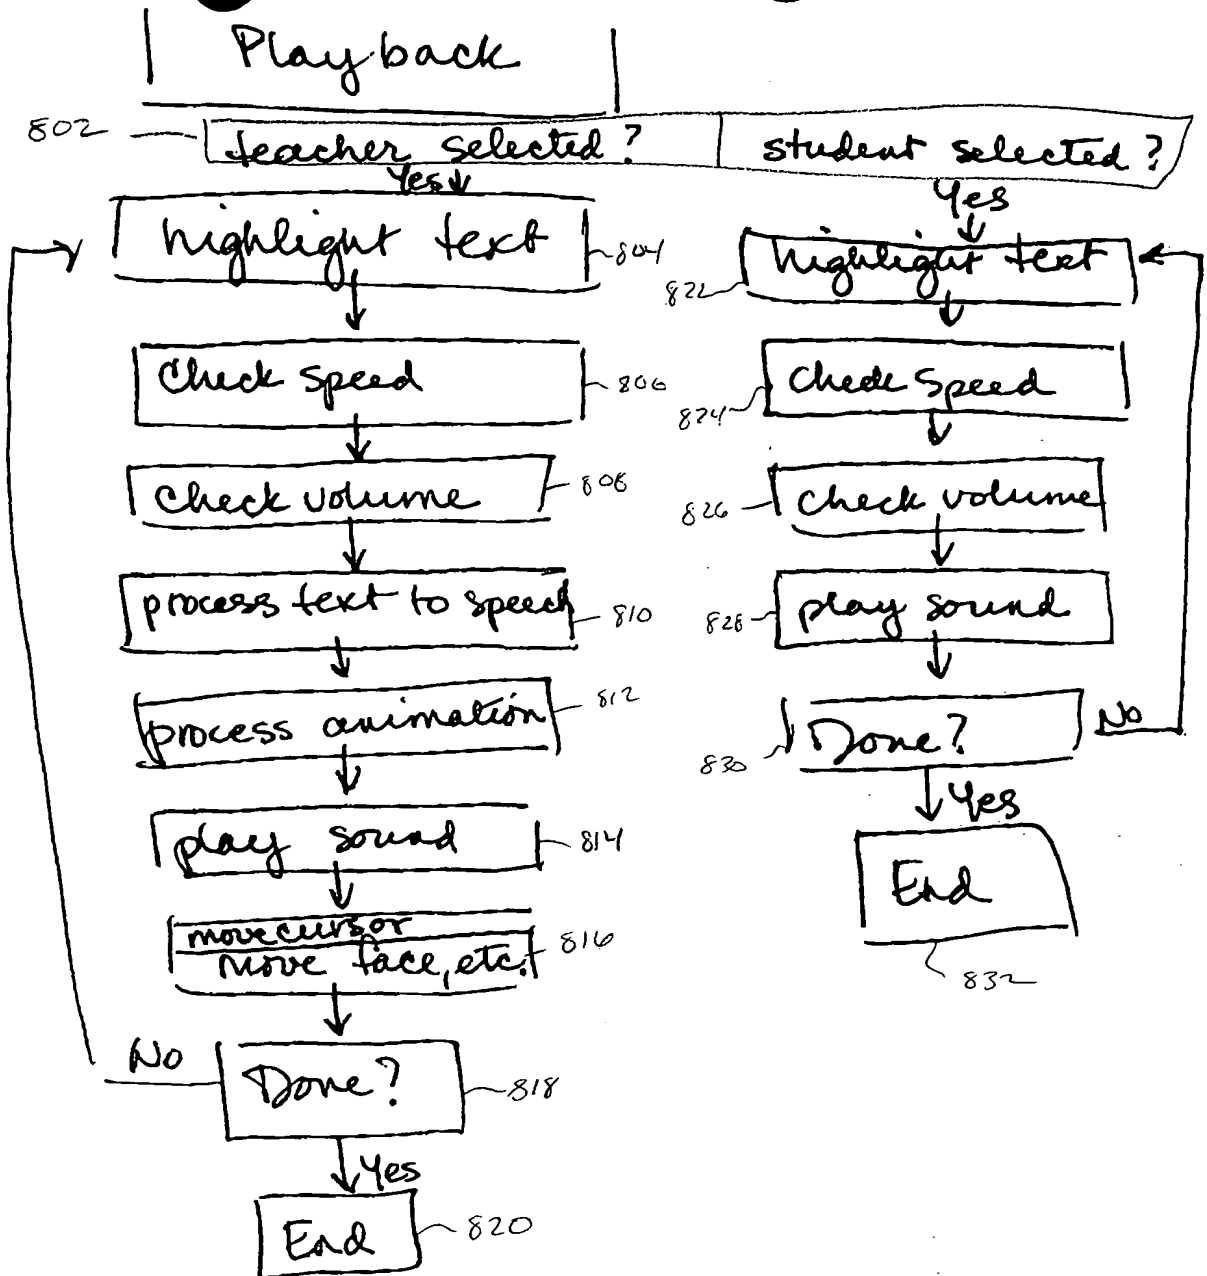 Playback
802 teacher selected? student selected?
Yes
highlight text 804
Check speed 806
Check volume 808
process text to speech 810
process animation 812
play sound 814
move cursor
move face, etc. 816
No Done? 818
Yes
End 820
Yes
highlight text
822
Check Speed
824
826 Check volume
828 play sound
Done? No
830
Yes
End
832